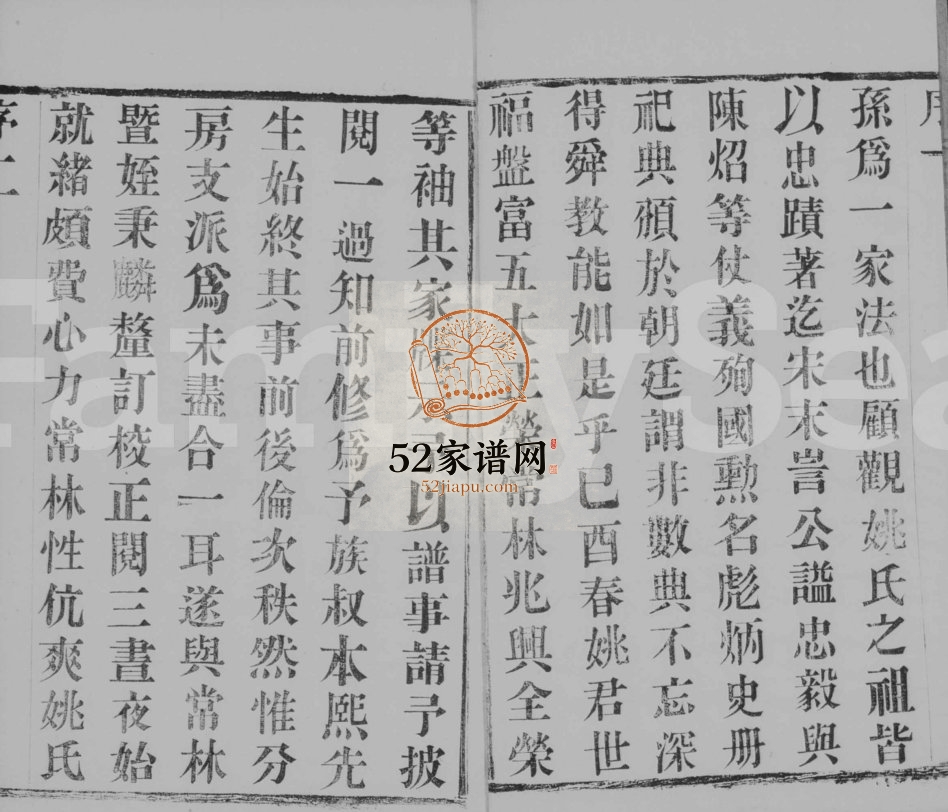 序一
孫爲一家法也顧觀姚氏之祖皆
以忠蹟著迄宋末訔公諡忠毅與
陳炤等仗義殉國勲名彪炳史册
祀典頒於朝廷謂非數典不忘深
得舜教能如是乎己酉春姚君世
福盤富五大 林兆興全榮
等袖其家 以譜事請予披
閱一過知前修爲予族叔本熙先
生始終其事前後倫次秩然惟分
房支派爲未盡合一耳遂與常林
暨姪秉麟釐訂校正閱三晝夜始
就緒頗費心力常林性伉爽姚氏
序二
52家谱网
52jiapu.com
FamilySea